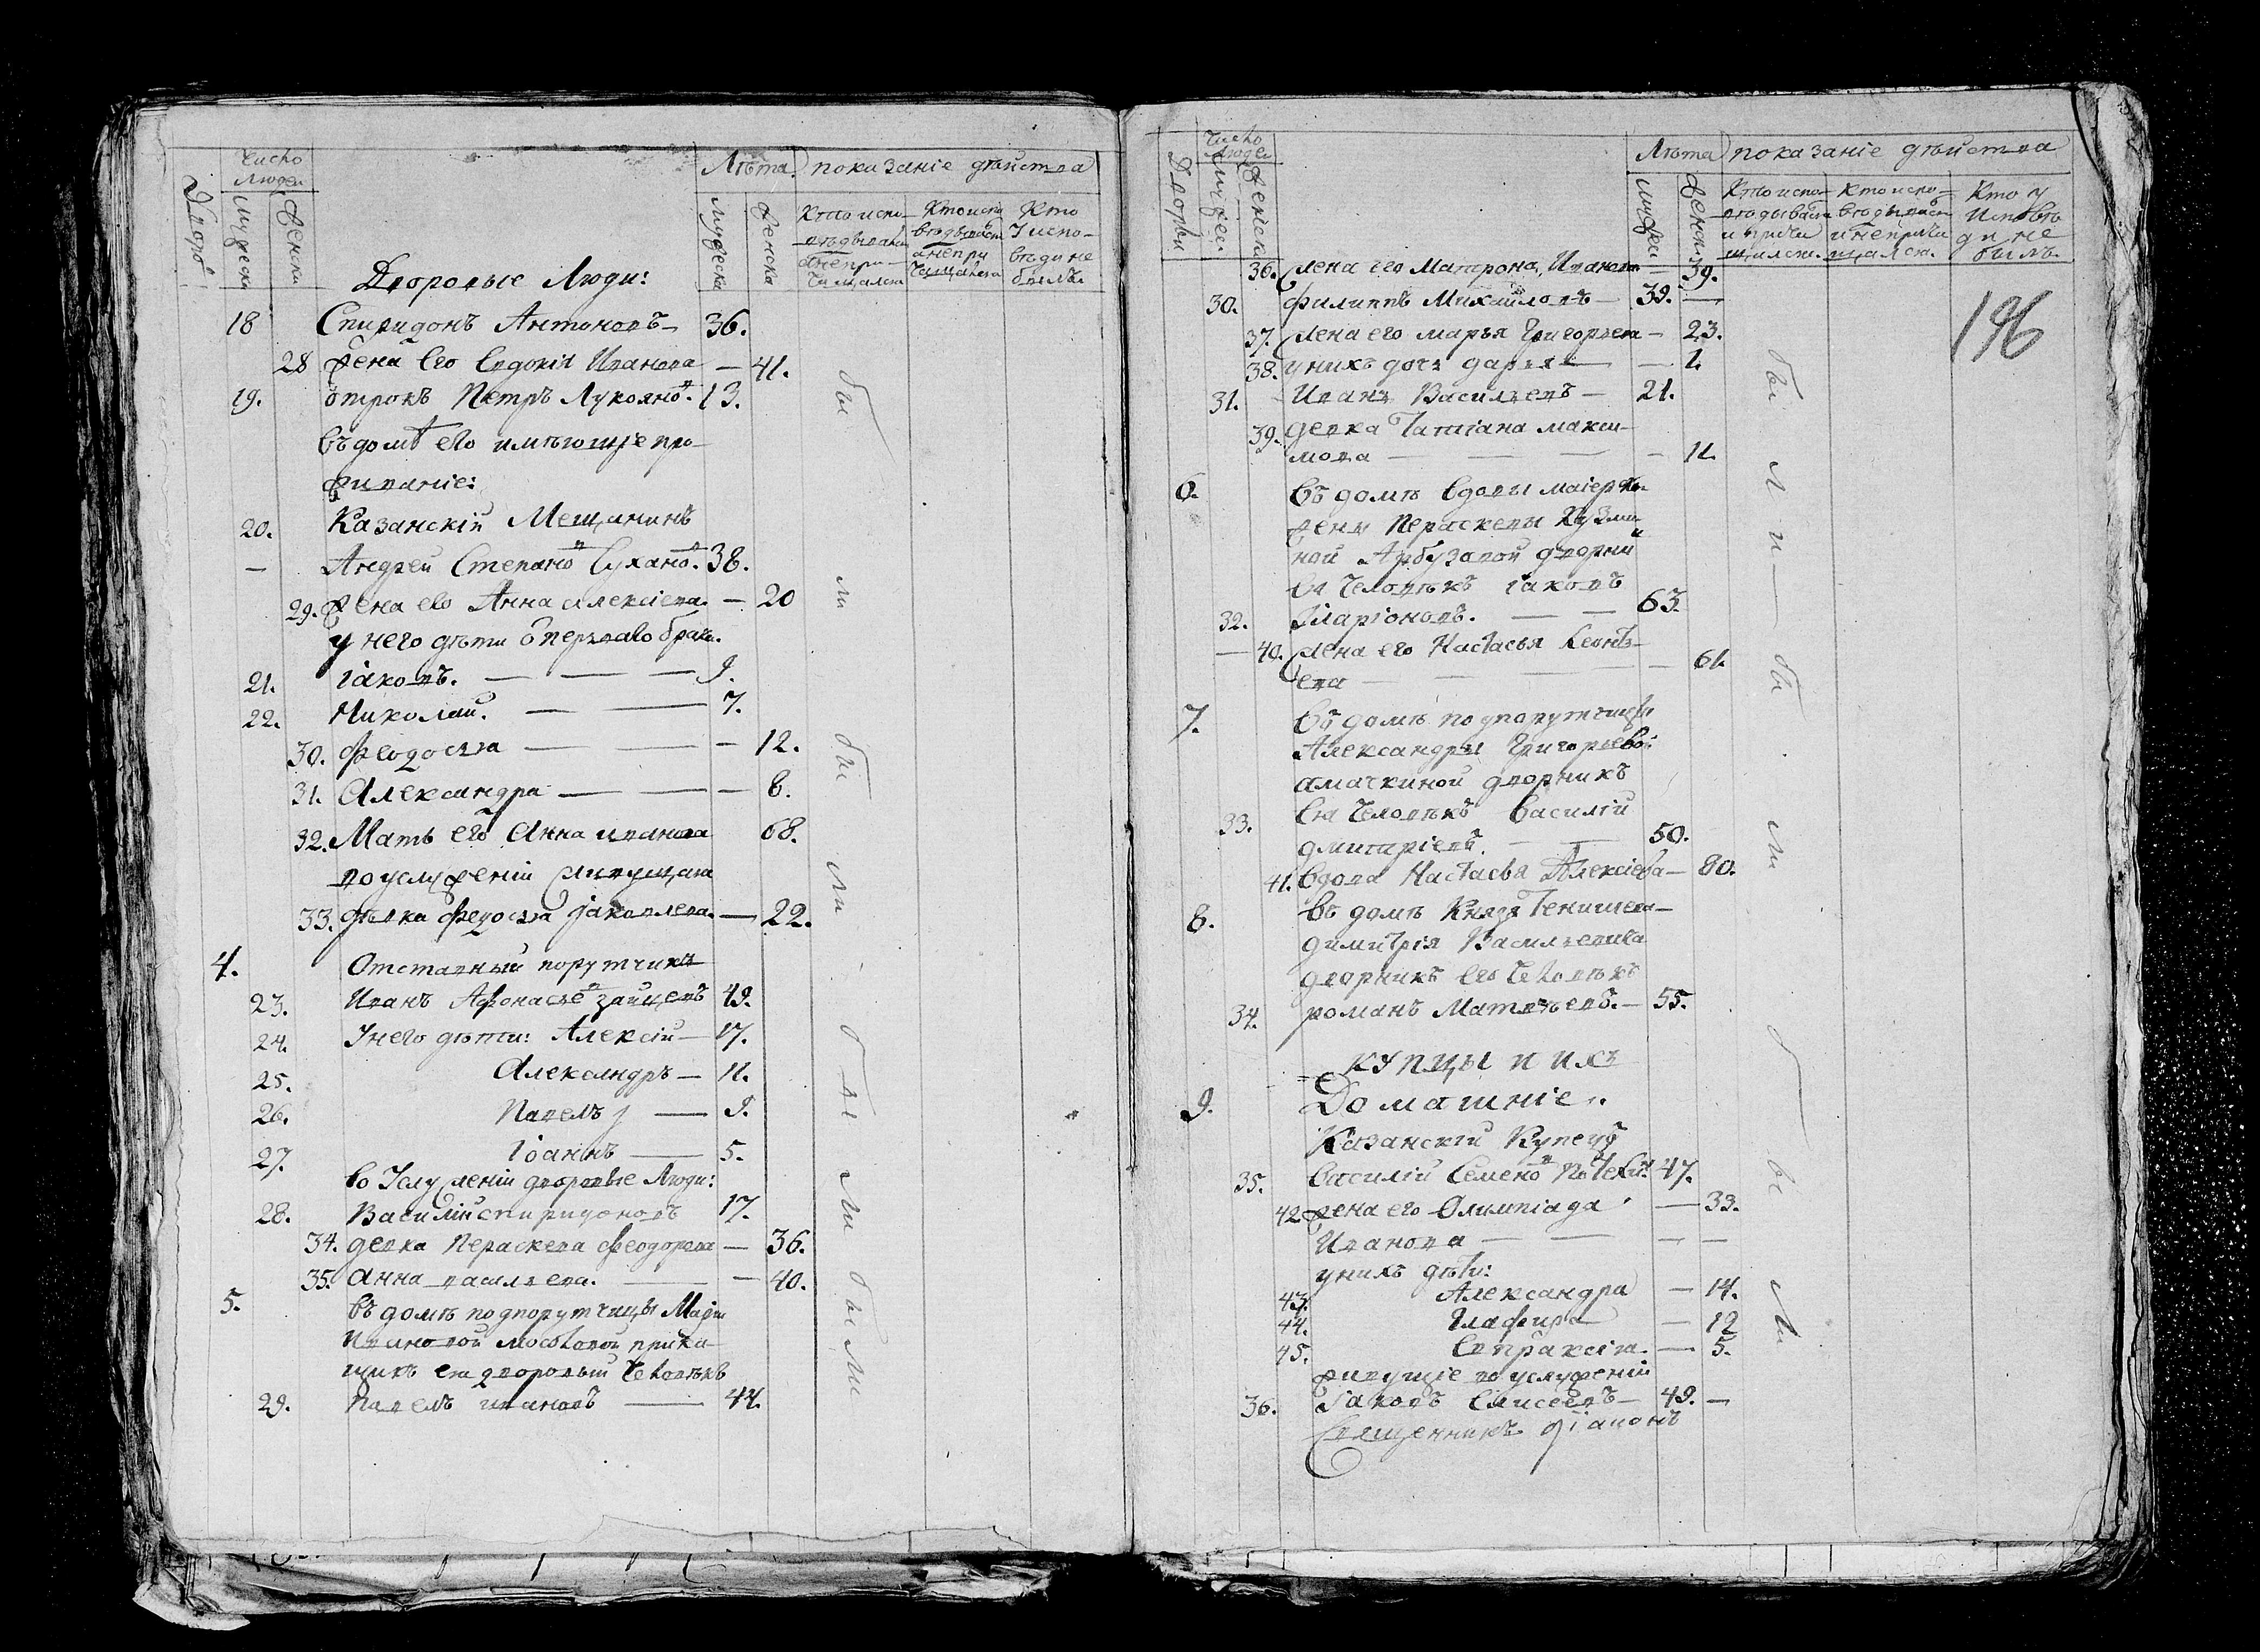 Число Людей
Дворов
Мужеска
Женска
Лѣта
показанiе дѣйства
Мужеска
Женска
Кто испо-
вѣдывался
Кто испо
вѣдывался
а непри
чащался
Кто
У испо-
вѣди не
былъ
Дворовые Люди:
18 Спиридонъ Антоновъ — 36.
28 жена Его Евдокiя Иванова — 41.
19. отрокъ Петръ Лукояновъ. 13.
въ домѣ его имѣющiе про-
живанiе:
20. Казанскiй Мещанинъ
— Андрей Степановъ Сухановъ. 38.
29. жена его Анна алексiева. — 20
у него дѣти отперваго брака.
21. iаковъ. — — — 9.
22. Николай. — — 7.
30. Феодосья — — — 12.
31. Александра — — — 8.
32. Мать его Анна иванова 68.
во услуженiи живущая
33. дѣвка Федосья Iаковлева. — 22.
4. Отставный порутчикъ
23. Иванъ Афонасьевъ зайцевъ 49.
24. Унего дѣти: Алексiй — 17.
25. Александръ — 11.
26. Павелъ — 9.
27. Iоаннъ — 5.
во Услуженiи дворовые Люди:
28. Василiй спиридоновъ 17.
34. девка Параскева Феодорова — 36.
35. Анна васильева. — — 40.
5. въ домѣ подпорутчицы Марiи
Ивановой прика-
щикъ ея дворовый Человѣкъ
29. Павелъ ивановъ — 44.
были были были были
Число Людей
Дворовъ
Мужеска
Женска
Лѣта
показанiе дѣйства
Мужеска
Женска
Кто испо-
вѣдывался
и причащался
Кто испо-
вѣдывался
и непричащался
Кто у
Исповѣ
ди не
былъ.
196
36. жена его Матрона Иванова — 39.
30. филиппъ Михайловъ — 39. —
37. жена его марья Григорьева — 23.
38. унихъ дочь дарья — — 1.
31. Иванъ Васильевъ — 21.
39. девка Татiана макси-
мова — — — — 11.
6. въ домѣ вдовы маiерской
жены Параскевы Кузми-
ной Арбузовой дворни
ея Человѣкъ iаковъ
32. Иларiоновъ. — — 63.
— 40. жена его Настасья Леонтъ-
ева — — — 61.
7. въ домѣ подпорутчицы
Александры Григорьевой
амачкиной дворникъ
33. ея Человѣкъ Василiй
дмитрiевъ. — — 50.
41. вдова Настасья Алексiева — 80.
8. въ домѣ Князя Тенишева
димитрiя Васильевича
дворникъ его Человѣкъ
34. романъ Матвѣевъ. — 55.
купцы и ихъ
9. Домашнiе..
Казанскiй Купецъ
35. Василiй Семеновъ 47.
42. жена его Олимпiада — 33.
Иванова — — — —
унихъ дѣти:
43. Александра — 14.
44. Глафира — 12
45. Евпраксiя. — 5.
живущiе во услуженiи
36. Iаковъ Елисеевъ — 49. —
Священникъ
были были были